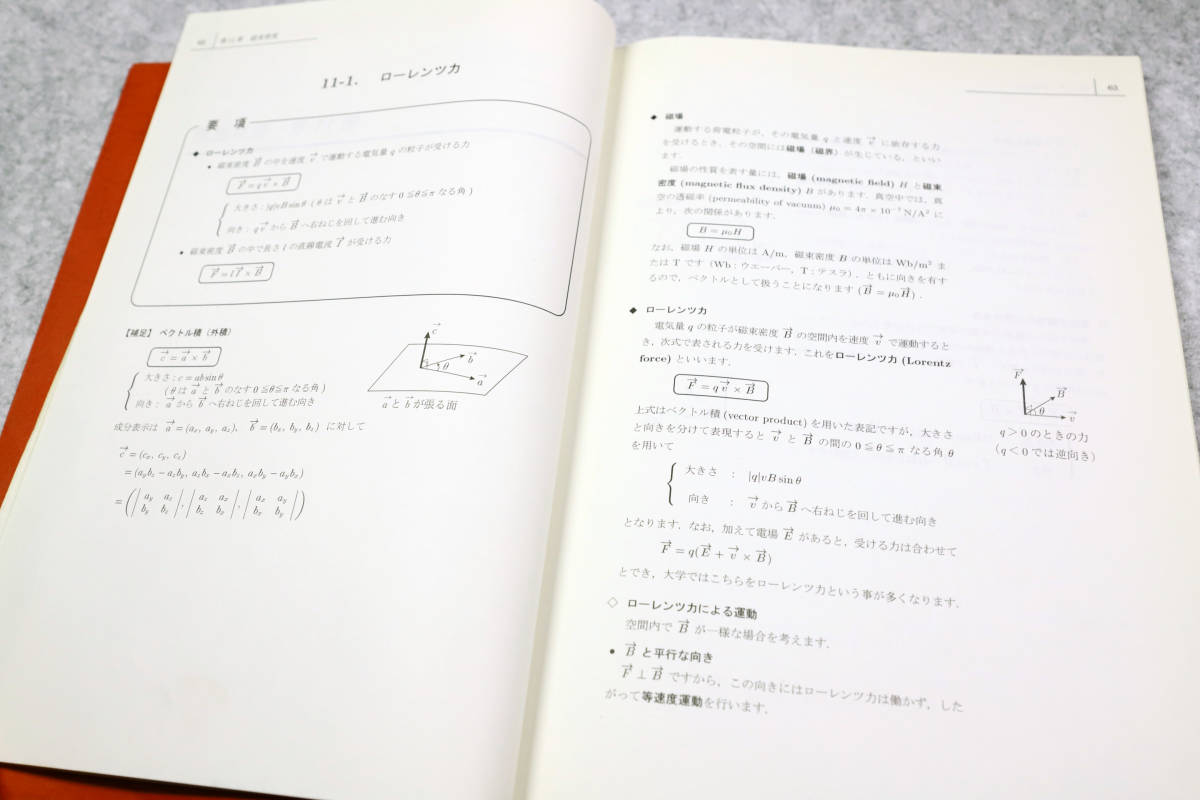 第11章 磁束密度
11-1. ローレンツ力
要 項
◆ ローレンツ力
• 磁束密度 $\vec{B}$ の中を速度 $\vec{v}$ で運動する電気量 q の粒子が受ける力
$\vec{F} = q\vec{v} \times \vec{B}$
大きさ：|q|vB sin θ ( θ は $\vec{v}$ と $\vec{B}$ のなす 0≦θ≦π なる角 )
向き：q$\vec{v}$ から $\vec{B}$ へ右ねじを回して進む向き
• 磁束密度 $\vec{B}$ の中で長さ l の直線電流 $\vec{I}$ が受ける力
$\vec{F} = l\vec{I} \times \vec{B}$
【補足】 ベクトル積（外積）
$\vec{c} = \vec{a} \times \vec{b}$
大きさ：c = ab sin θ
( θ は $\vec{a}$ と $\vec{b}$ のなす 0≦θ≦π なる角 )
向き：$\vec{a}$ から $\vec{b}$ へ右ねじを回して進む向き
$\vec{c}$
$\vec{b}$
θ
$\vec{a}$
$\vec{a}$ と $\vec{b}$ が張る面
成分表示は $\vec{a}$ = (a_x, a_y, a_z), $\vec{b}$ = (b_x, b_y, b_z) に対して
$\vec{c}$ = (c_x, c_y, c_z)
= (a_y b_z − a_z b_y, a_z b_x − a_x b_z, a_x b_y − a_y b_x)
= ( | a_y a_z |, | a_z a_x |, | a_x a_y | )
| b_y b_z | | b_z b_x | | b_x b_y |
63
◆ 磁場
運動する荷電粒子が，その電気量 q と速度 $\vec{v}$ に依存する力
を受けるとき，その空間には磁場（磁界）が生じている，といい
ます．
磁場の性質を表す量には，磁場 (magnetic field) H と磁束
密度 (magnetic flux density) B があります．真空中では，真
空の透磁率 (permeability of vacuum) μ₀ = 4π × 10⁻⁷ N/A² に
より，次の関係があります．
B = μ₀H
なお，磁場 H の単位は A/m，磁束密度 B の単位は Wb/m² ま
たは T です（Wb：ウエーバー，T：テスラ）．ともに向きを有す
るので，ベクトルとして扱うことになります ($\vec{B}$ = μ₀$\vec{H}$)．
◆ ローレンツ力
電気量 q の粒子が磁束密度 $\vec{B}$ の空間内を速度 $\vec{v}$ で運動すると
き，次式で表される力を受けます．これをローレンツ力 (Lorentz
force) といいます．
$\vec{F} = q\vec{v} \times \vec{B}$
上式はベクトル積 (vector product) を用いた表記ですが，大きさ
と向きを分けて表現すると $\vec{v}$ と $\vec{B}$ の間の 0 ≦ θ ≦ π なる角 θ
を用いて
大きさ ： |q|vB sin θ
向き ： $\vec{v}$ から $\vec{B}$ へ右ねじを回して進む向き
となります．なお，加えて電場 $\vec{E}$ があると，受ける力は合わせて
$\vec{F} = q(\vec{E} + \vec{v} \times \vec{B})$
とでき，大学ではこちらをローレンツ力という事が多くなります．
◇ ローレンツ力による運動
空間内で $\vec{B}$ が一様な場合を考えます．
• $\vec{B}$ と平行な向き
$\vec{F}$ ⊥ $\vec{B}$ ですから，この向きにはローレンツ力は働かず，した
がって等速度運動を行います．
$\vec{F}$
$\vec{B}$
θ
$\vec{v}$
q > 0 のときの力
（q < 0 では逆向き）